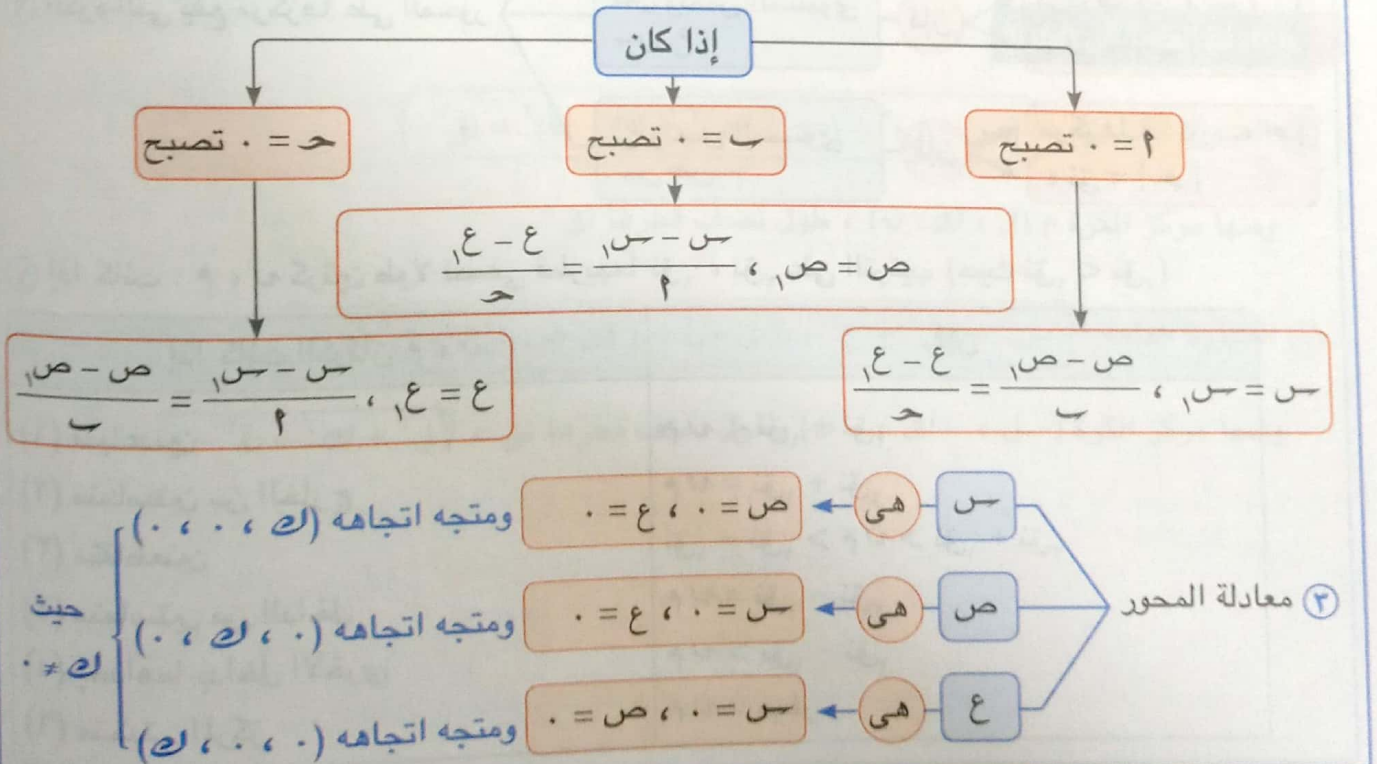 إذا كان
أ = ٠ تصبح
ب = ٠ تصبح
حـ = ٠ تصبح
ص = ص١ ، (س − س١)/أ = (ع − ع١)/حـ
س = س١ ، (ص − ص١)/ب = (ع − ع١)/حـ
ع = ع١ ، (س − س١)/أ = (ص − ص١)/ب
٣ معادلة المحور
س هى ص = ٠ ، ع = ٠ ومتجه اتجاهه (ك ، ٠ ، ٠)
ص هى س = ٠ ، ع = ٠ ومتجه اتجاهه (٠ ، ك ، ٠)
ع هى س = ٠ ، ص = ٠ ومتجه اتجاهه (٠ ، ٠ ، ك)
حيث
ك ≠ ٠